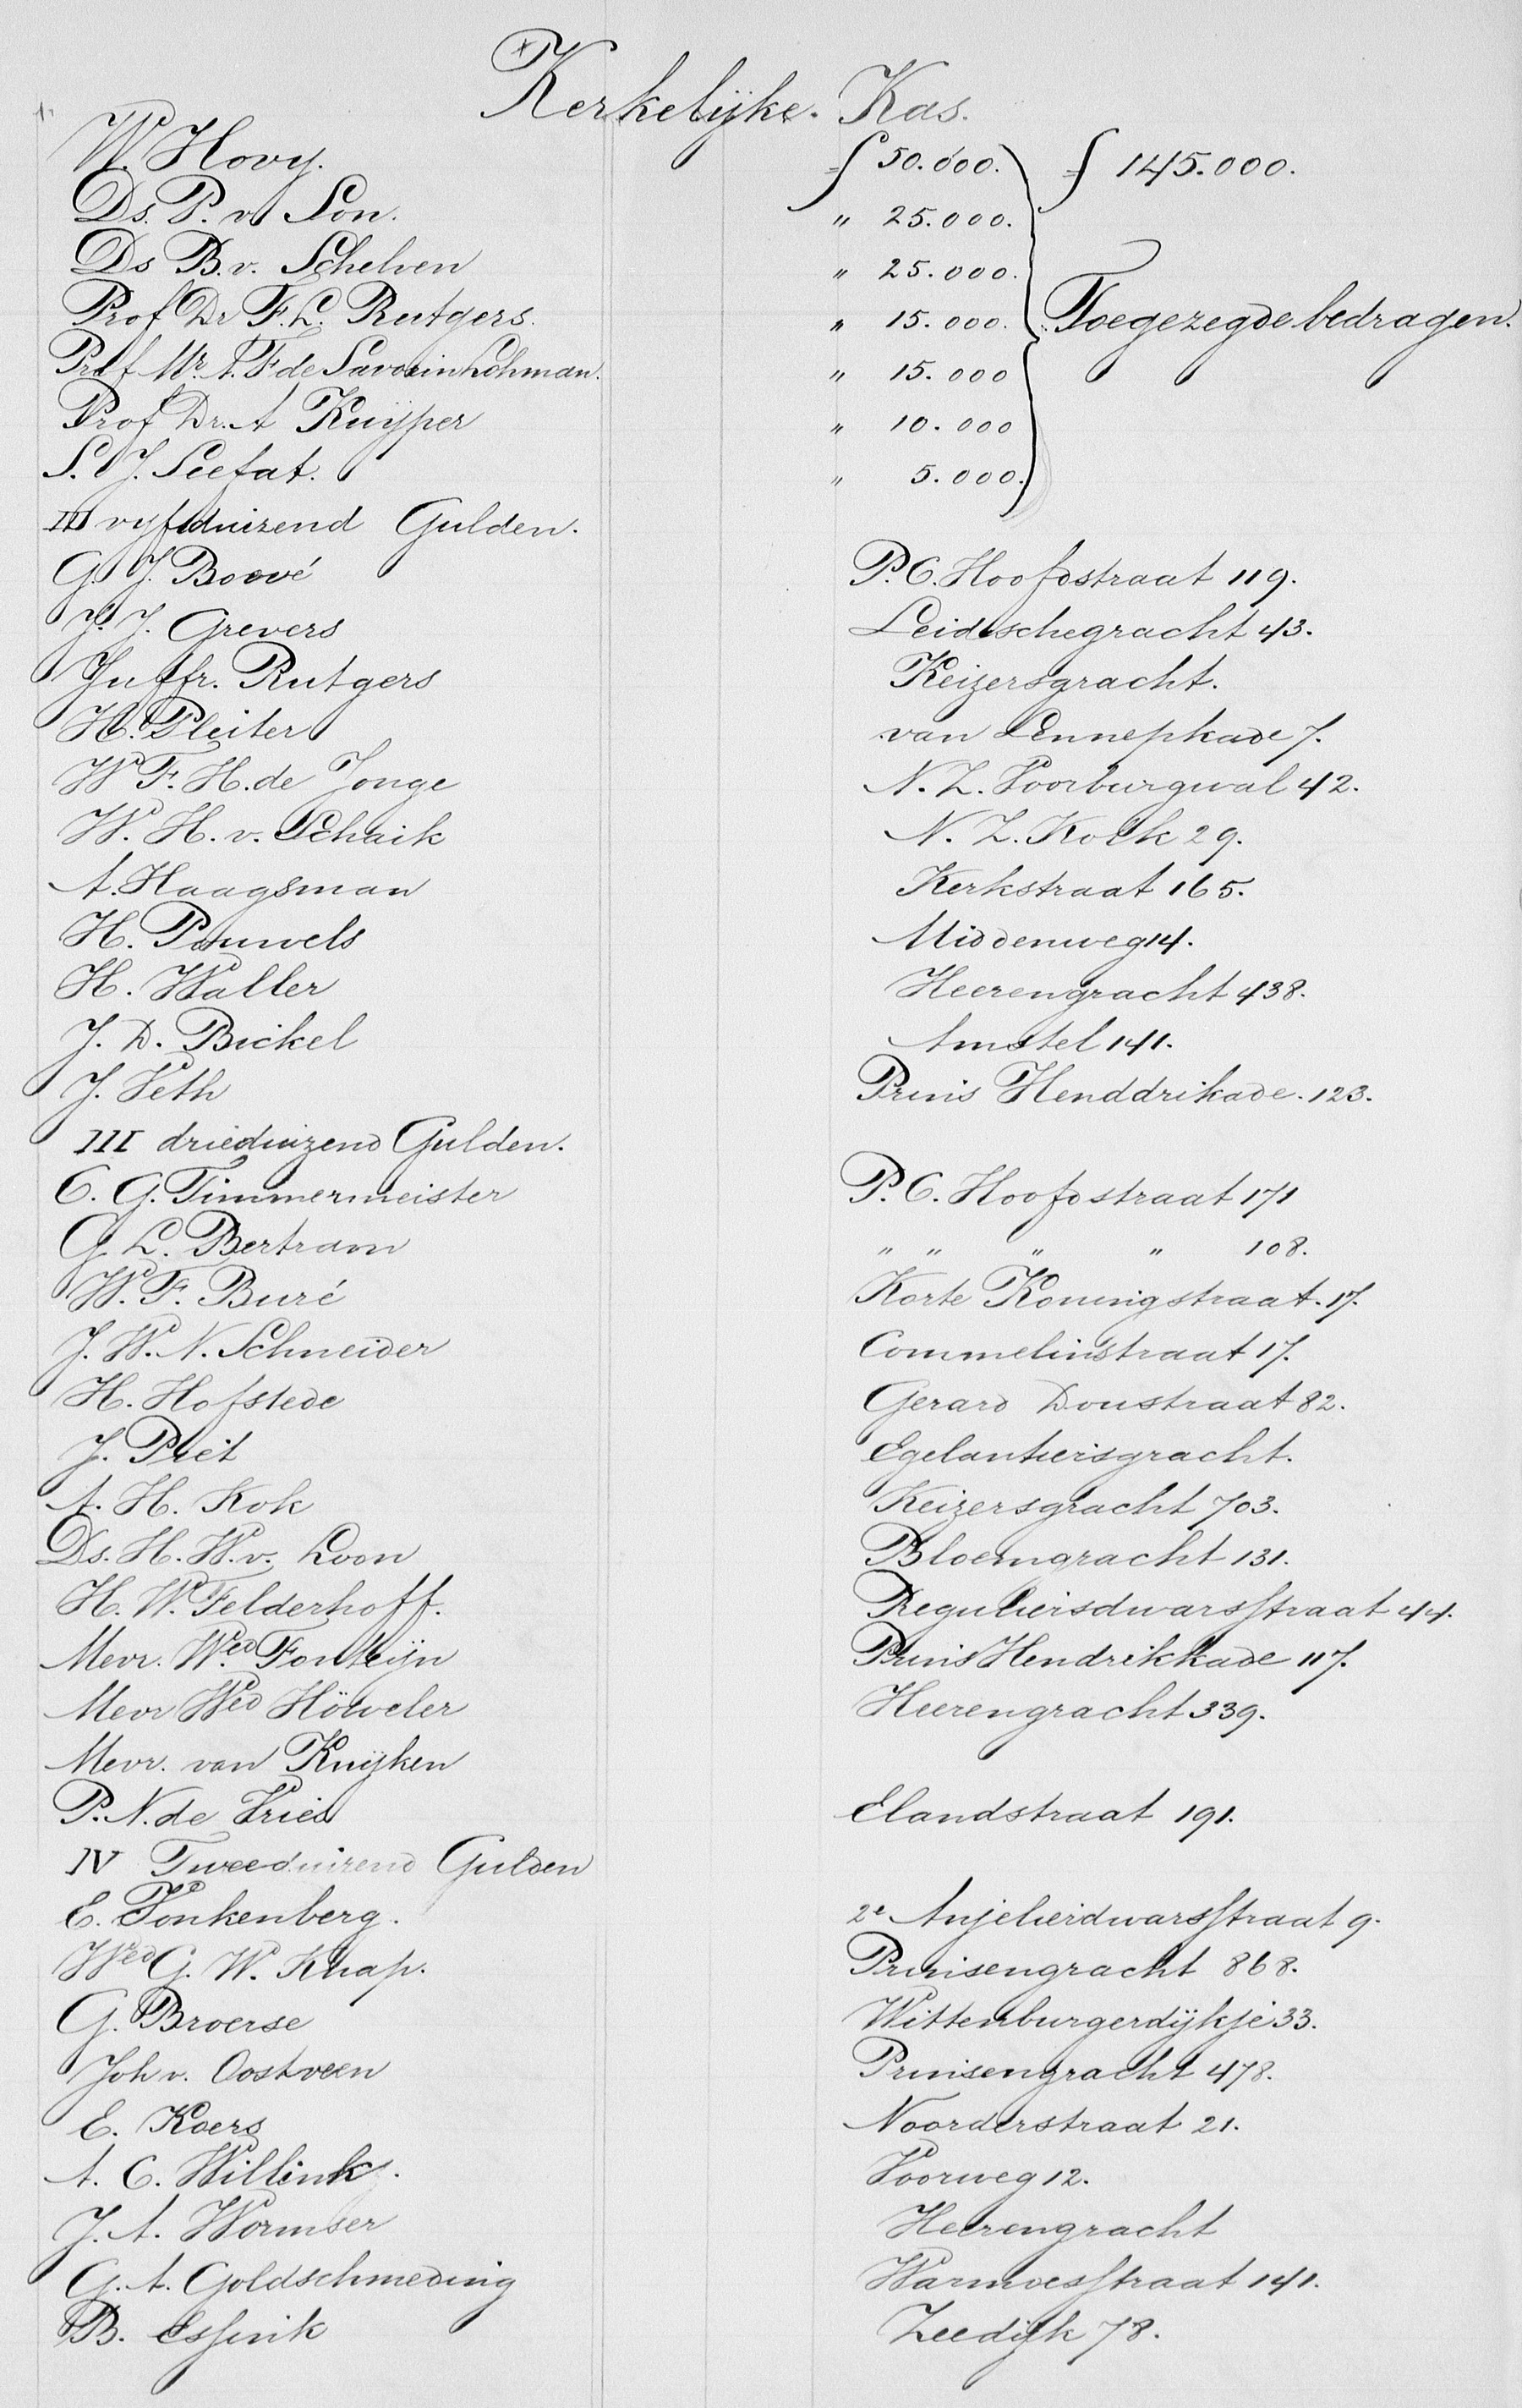 Kerkelijke. Kas.
W. Hovy. ƒ 50.000. ƒ 145.000.
Ds. P. v Son. " 25.000.
Ds B. v. Schelven " 25.000.
Prof Dr F. L. Rutgers. " 15.000. Toegezegde bedragen.
Prof Mr. A. F de Savorin Lohman. " 15.000
Prof Dr. A Kuijper " 10.000
S. J. Seefat. " 5.000.
III vyfduizend Gulden.
G. J. Boové P. C. Hoofdstraat 119.
J. J. Grevers Leidschegracht 43.
Juffr. Rutgers Keizersgracht.
H. Pleiter van Lennepkade 7.
W F. H. de Jonge N. Z. Voorburgwal 42.
W. H. v. Schaik N. Z. Kolk 29.
A. Haagsman Kerkstraat 165.
H. Pauwels Middenweg 14.
H. Waller Heerengracht 438.
J. D. Bickel Amstel 141.
J. Veth Prins Henddrikade. 123.
III drieduizend Gulden.
C. G. Timmermeister P. C. Hoofdstraat 171
G. L. Bertram " " " " 108.
W. F. Buré Korte Koningstraat. 17.
J. W. N. Schneider Commelinstraat 17.
H. Hofstede Gerard Doustraat 82.
J. Piet Egelantiersgracht.
A. H. Kok Keizersgracht 703.
Ds. H. W. v. Loon Bloemgracht 131.
H. W. Felderhoff. Reguliersdwarsstraat 44.
Mevr. Wed Fonteijn Prins Hendrikkade 117.
Mevr Wed Höweler Heerengracht 339.
Mevr. van Kuijken
P. N. de Vries Elandstraat 191.
IV Tweeduizend Gulden
E. Vonkenberg. 2e Anjelierdwarsstraat 9.
Wed G. W. Knap. Prinsengracht 868.
G. Broerse Wittenburgerdijkje 33.
Joh v. Oostveen Prinsengracht 478.
E. Koers Noorderstraat 21.
A. C. Willink. Voorweg 12.
J. A. Wormser Heerengracht
G. A. Goldschmeding Warmoesstraat 141.
B. Essink Zeedijk 78.